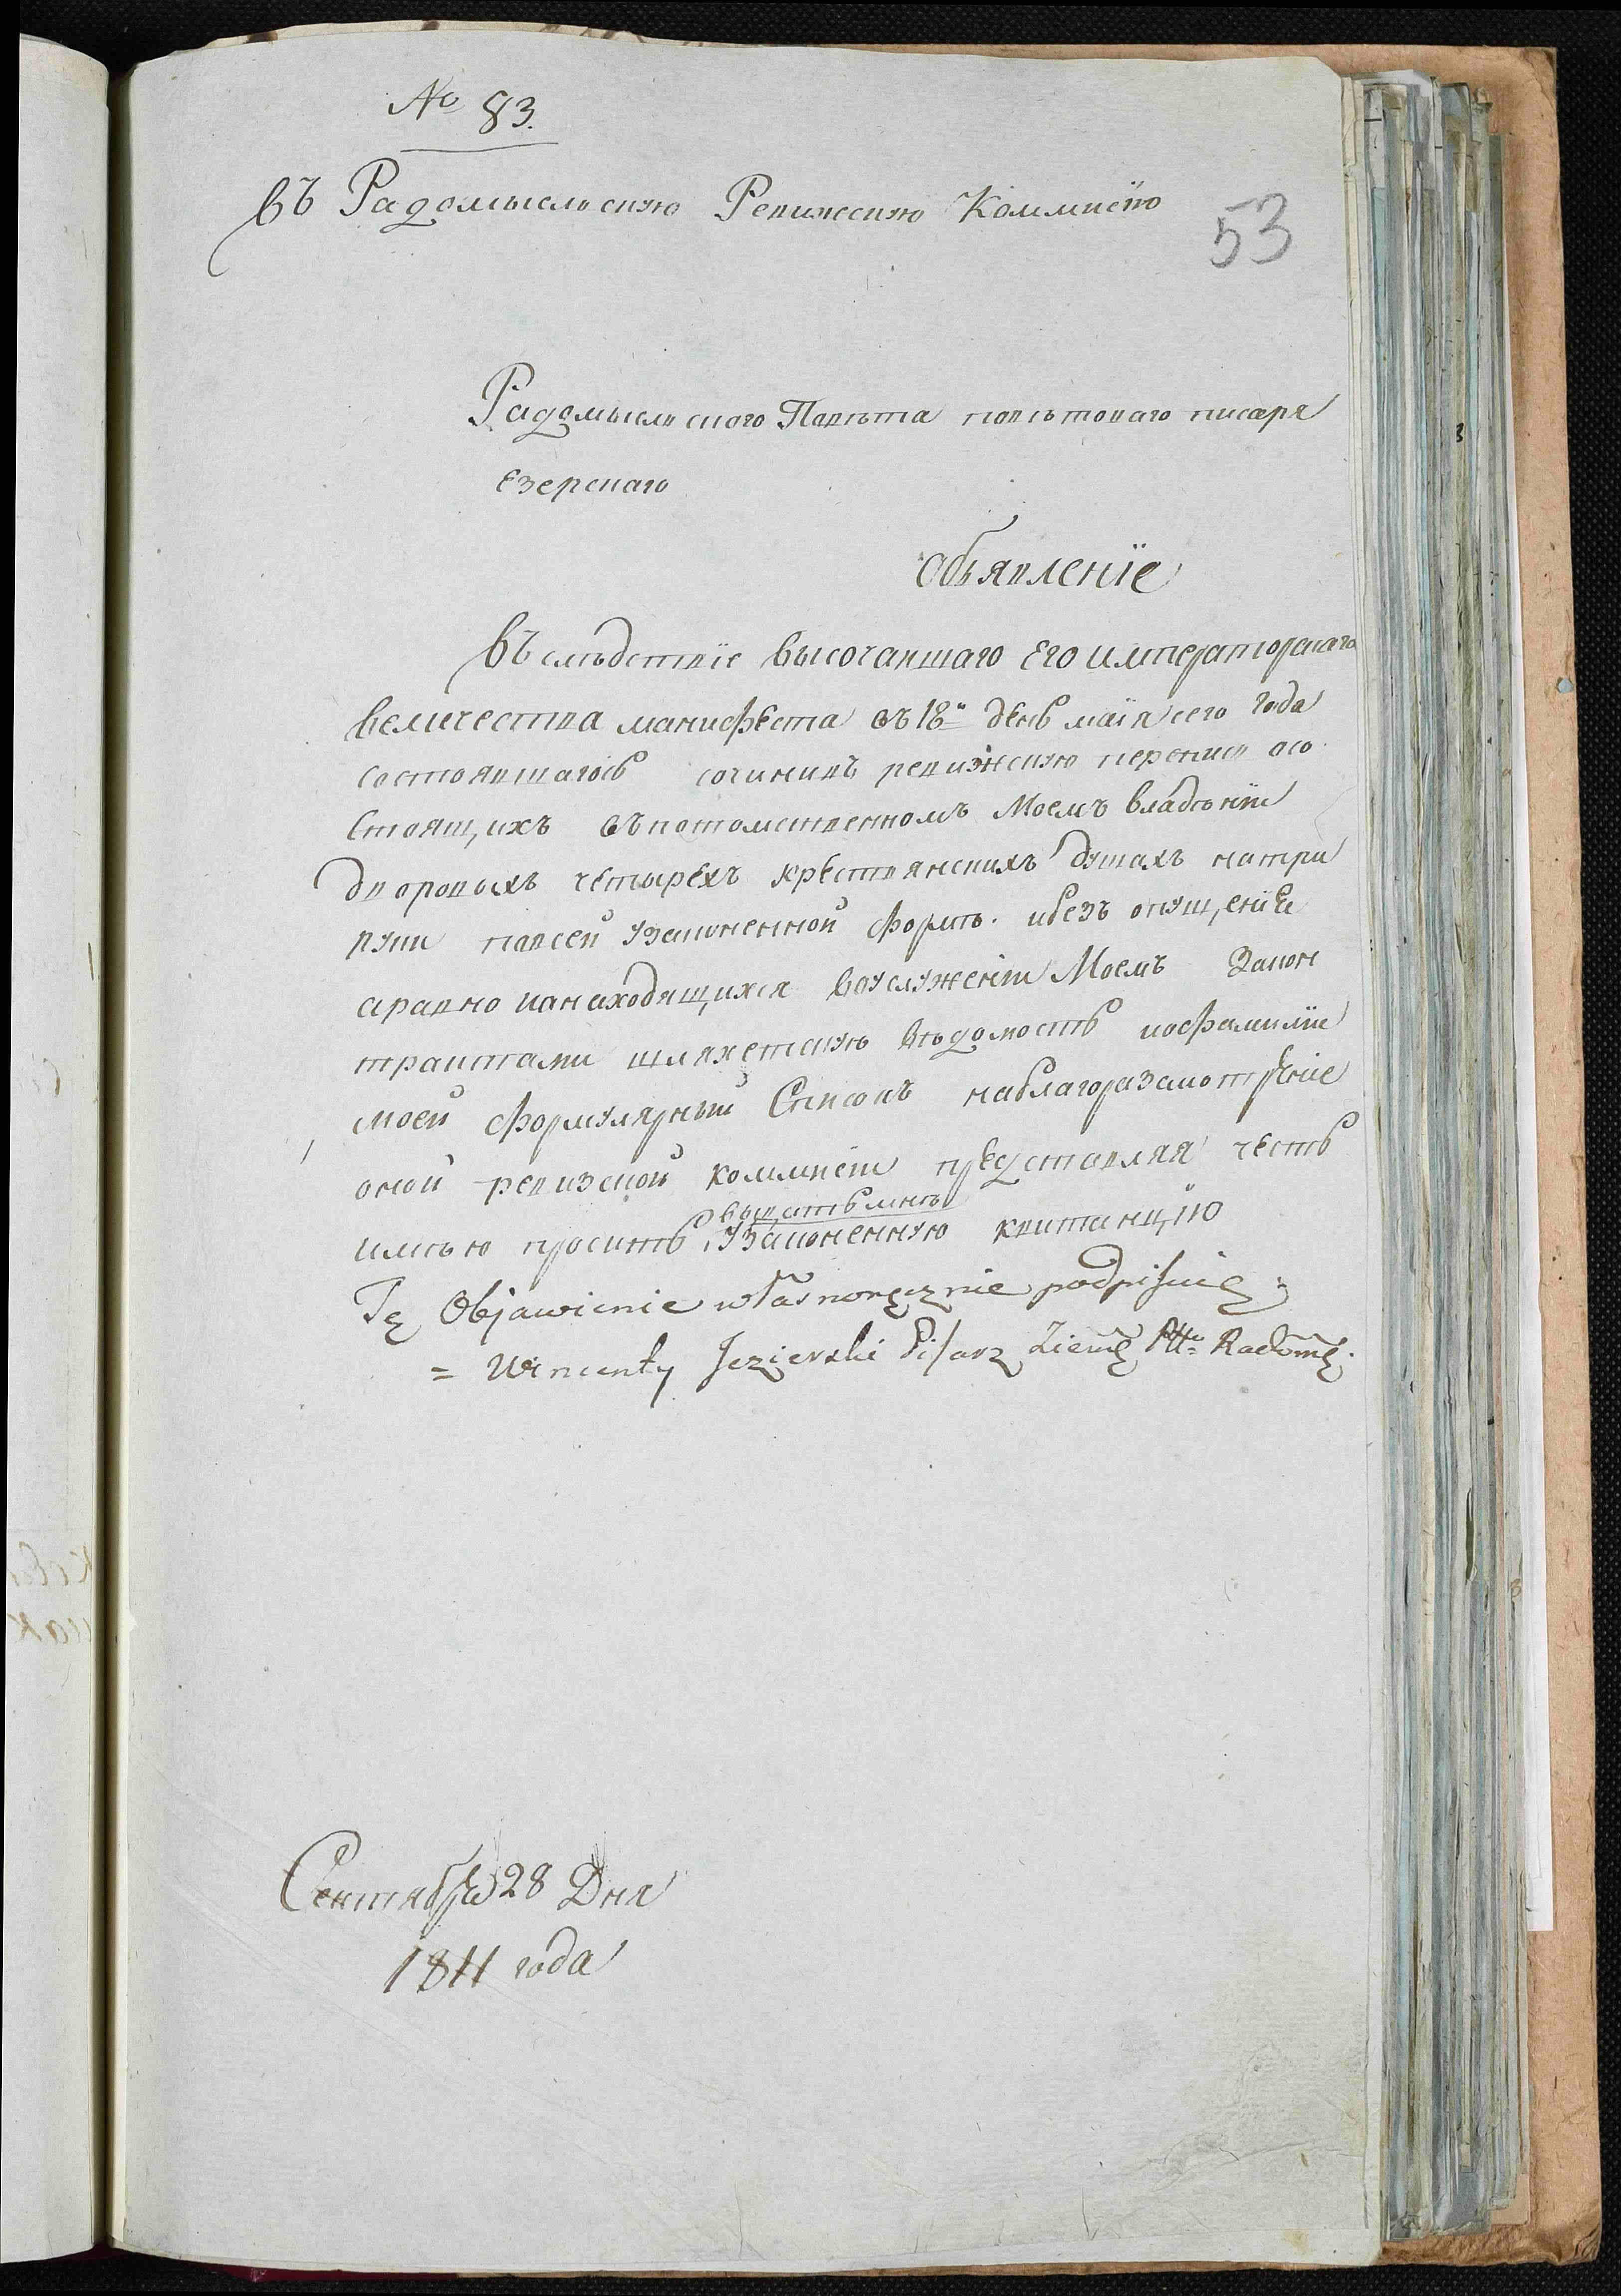 № 83.
въ Радомысльскую Ревижскую Коммисїю
53
Радомысльского Повѣта повѣтоваго писаря
Езерскаго
Объявленїе
Въ слѣдствїе Высочайшаго Его Императорскаго
Величества манифеста въ 18й день маїя сего года
состоявшагось сочинивъ ревижскую перепись осо
стоящихъ въ потомственномъ Моемъ владѣнїи
дворовыхъ четырехъ крестянскихъ душахъ на три
руки по всей узаконенной формѣ. и безъ опущенїи
а равно и о находящихся воуслуженїи Моемъ Закон
трактами шляхетскую вѣдомость и о фамилїи
моей формулярный Списокъ на благоразсмотренїе
оной ревизской коммисїи представляя честь
выдать мнѣ
имѣю просить узаконенную квитанцїю
Tę Objawienie własnoręcznie podpisuię:
= Wincenty Jezierski Pisarz Ziem̃ Pttu Radomẽ.
Сентября 28 Дня
1811 года